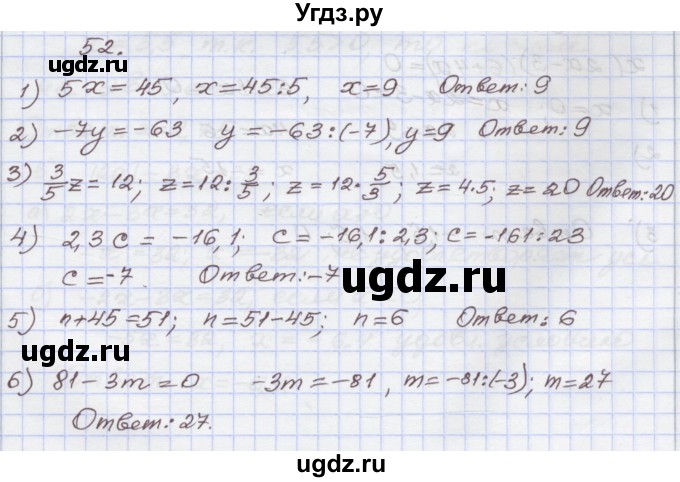 Угдз.ру
52.
угдз.ру
1) 5x = 45, x = 45:5, x = 9 Ответ: 9
2) -7y = -63 y = -63:(-7), y = 9 Ответ: 9
3) 3/5 z = 12; z = 12 : 3/5; z = 12 · 5/3; z = 4·5; z = 20 Ответ: 20
4) 2,3 c = -16,1; c = -16,1 : 2,3; c = -161 : 23
c = -7 Ответ: -7
ugdz.ru
угдз.ру
5) n + 45 = 51; n = 51 - 45; n = 6 Ответ: 6
ugdz.ru
6) 81 - 3m = 0 -3m = -81, m = -81:(-3); m = 27
Ответ: 27.
ugdz.ru
ugdz.ru